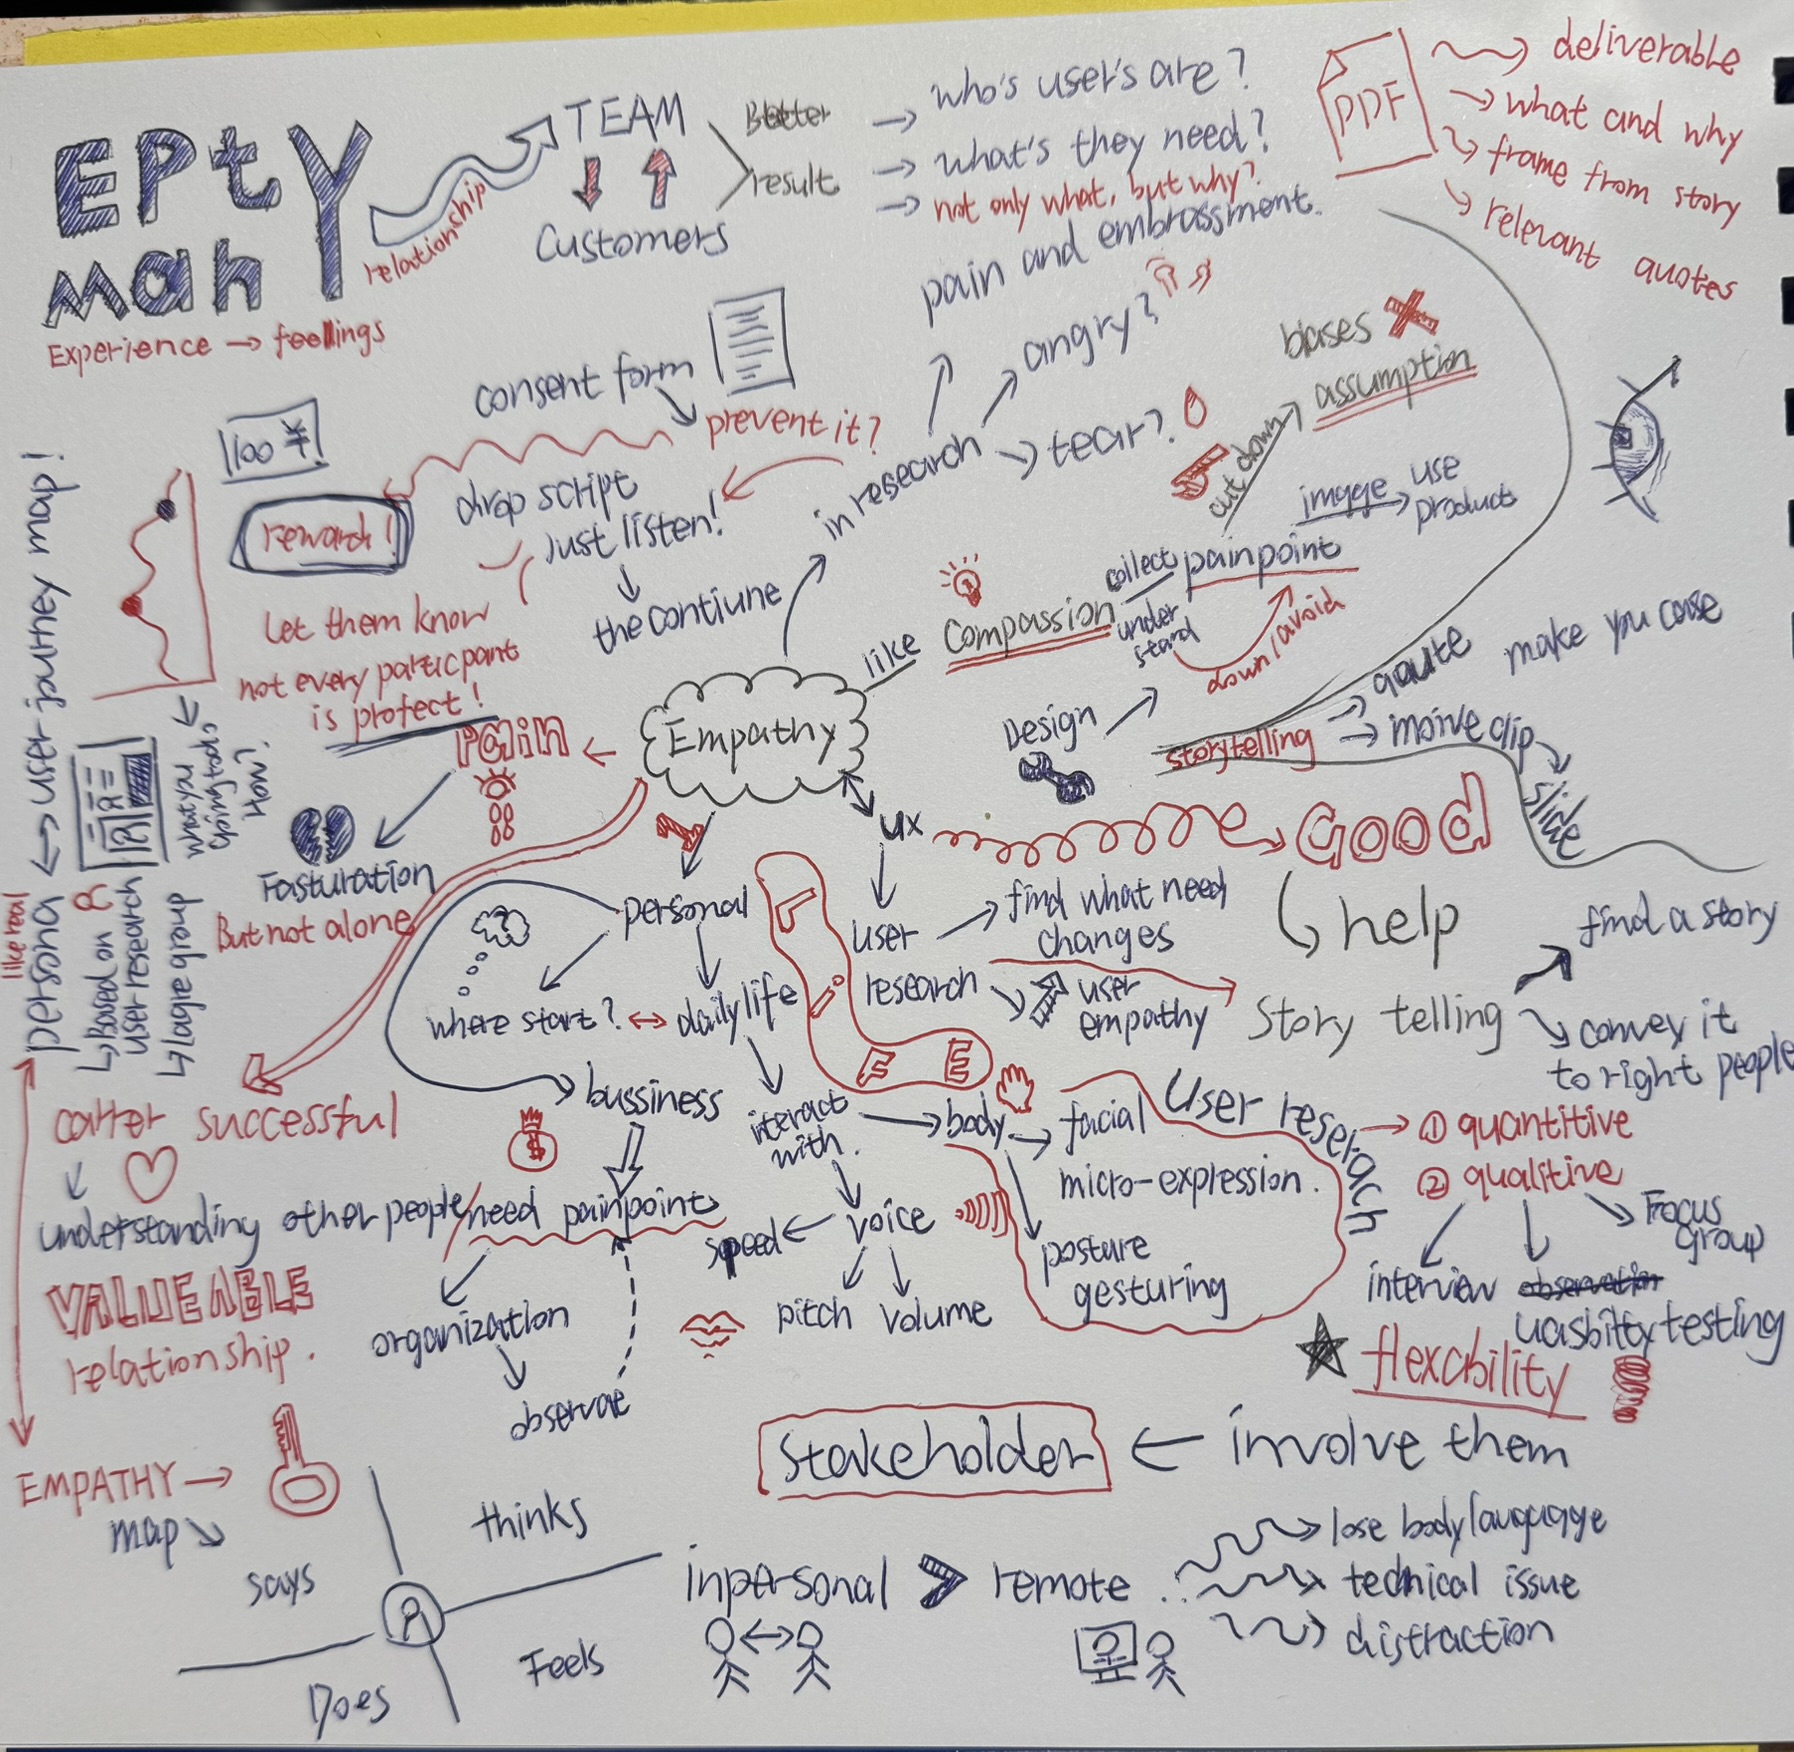 EPtY
mah
Experience → feelings
relationship
TEAM
Customers
Better
result
→ who's user's are?
→ what's they need?
→ not only what, but why?
PDF
deliverable
→ what and why
frame from story
relevant quotes
pain and embrassment.
angry?
tear?
in research
consent form
prevent it?
drop script
Just listen!
the contiune
100 ¥!
reward!
let them know
not every particpant
is protect!
biases
assumption
cut down
image → use
product
collect painpoint
under
stand
down/avoid
like Compassion
Empathy
Design
storytelling
qoute
make you case
moive clip
slide
Pain
Fasturation
But not alone
user journey map!
what you
How?
like real
persona
Based on
user research
lagre group
ux
GOOD
help
user
research
find what need
changes
user
empathy
Story telling
find a story
convey it
to right people
personal
where start? ↔ daily life
bussiness
iteract
with.
body
facial
micro-expression.
posture
gesturing
voice
speed
pitch
volume
need painpoint
organization
observae
User reserach
① quantitive
② qualitive
interview
observation
uasbility testing
Focus
group
★ flexability
successful
understanding other people
VALUEABLE
relationship.
Stakeholder ← involve them
EMPATHY →
map
says
thinks
Does
Feels
inpersonal > remote
lose body lauguage
technical issue
distraction